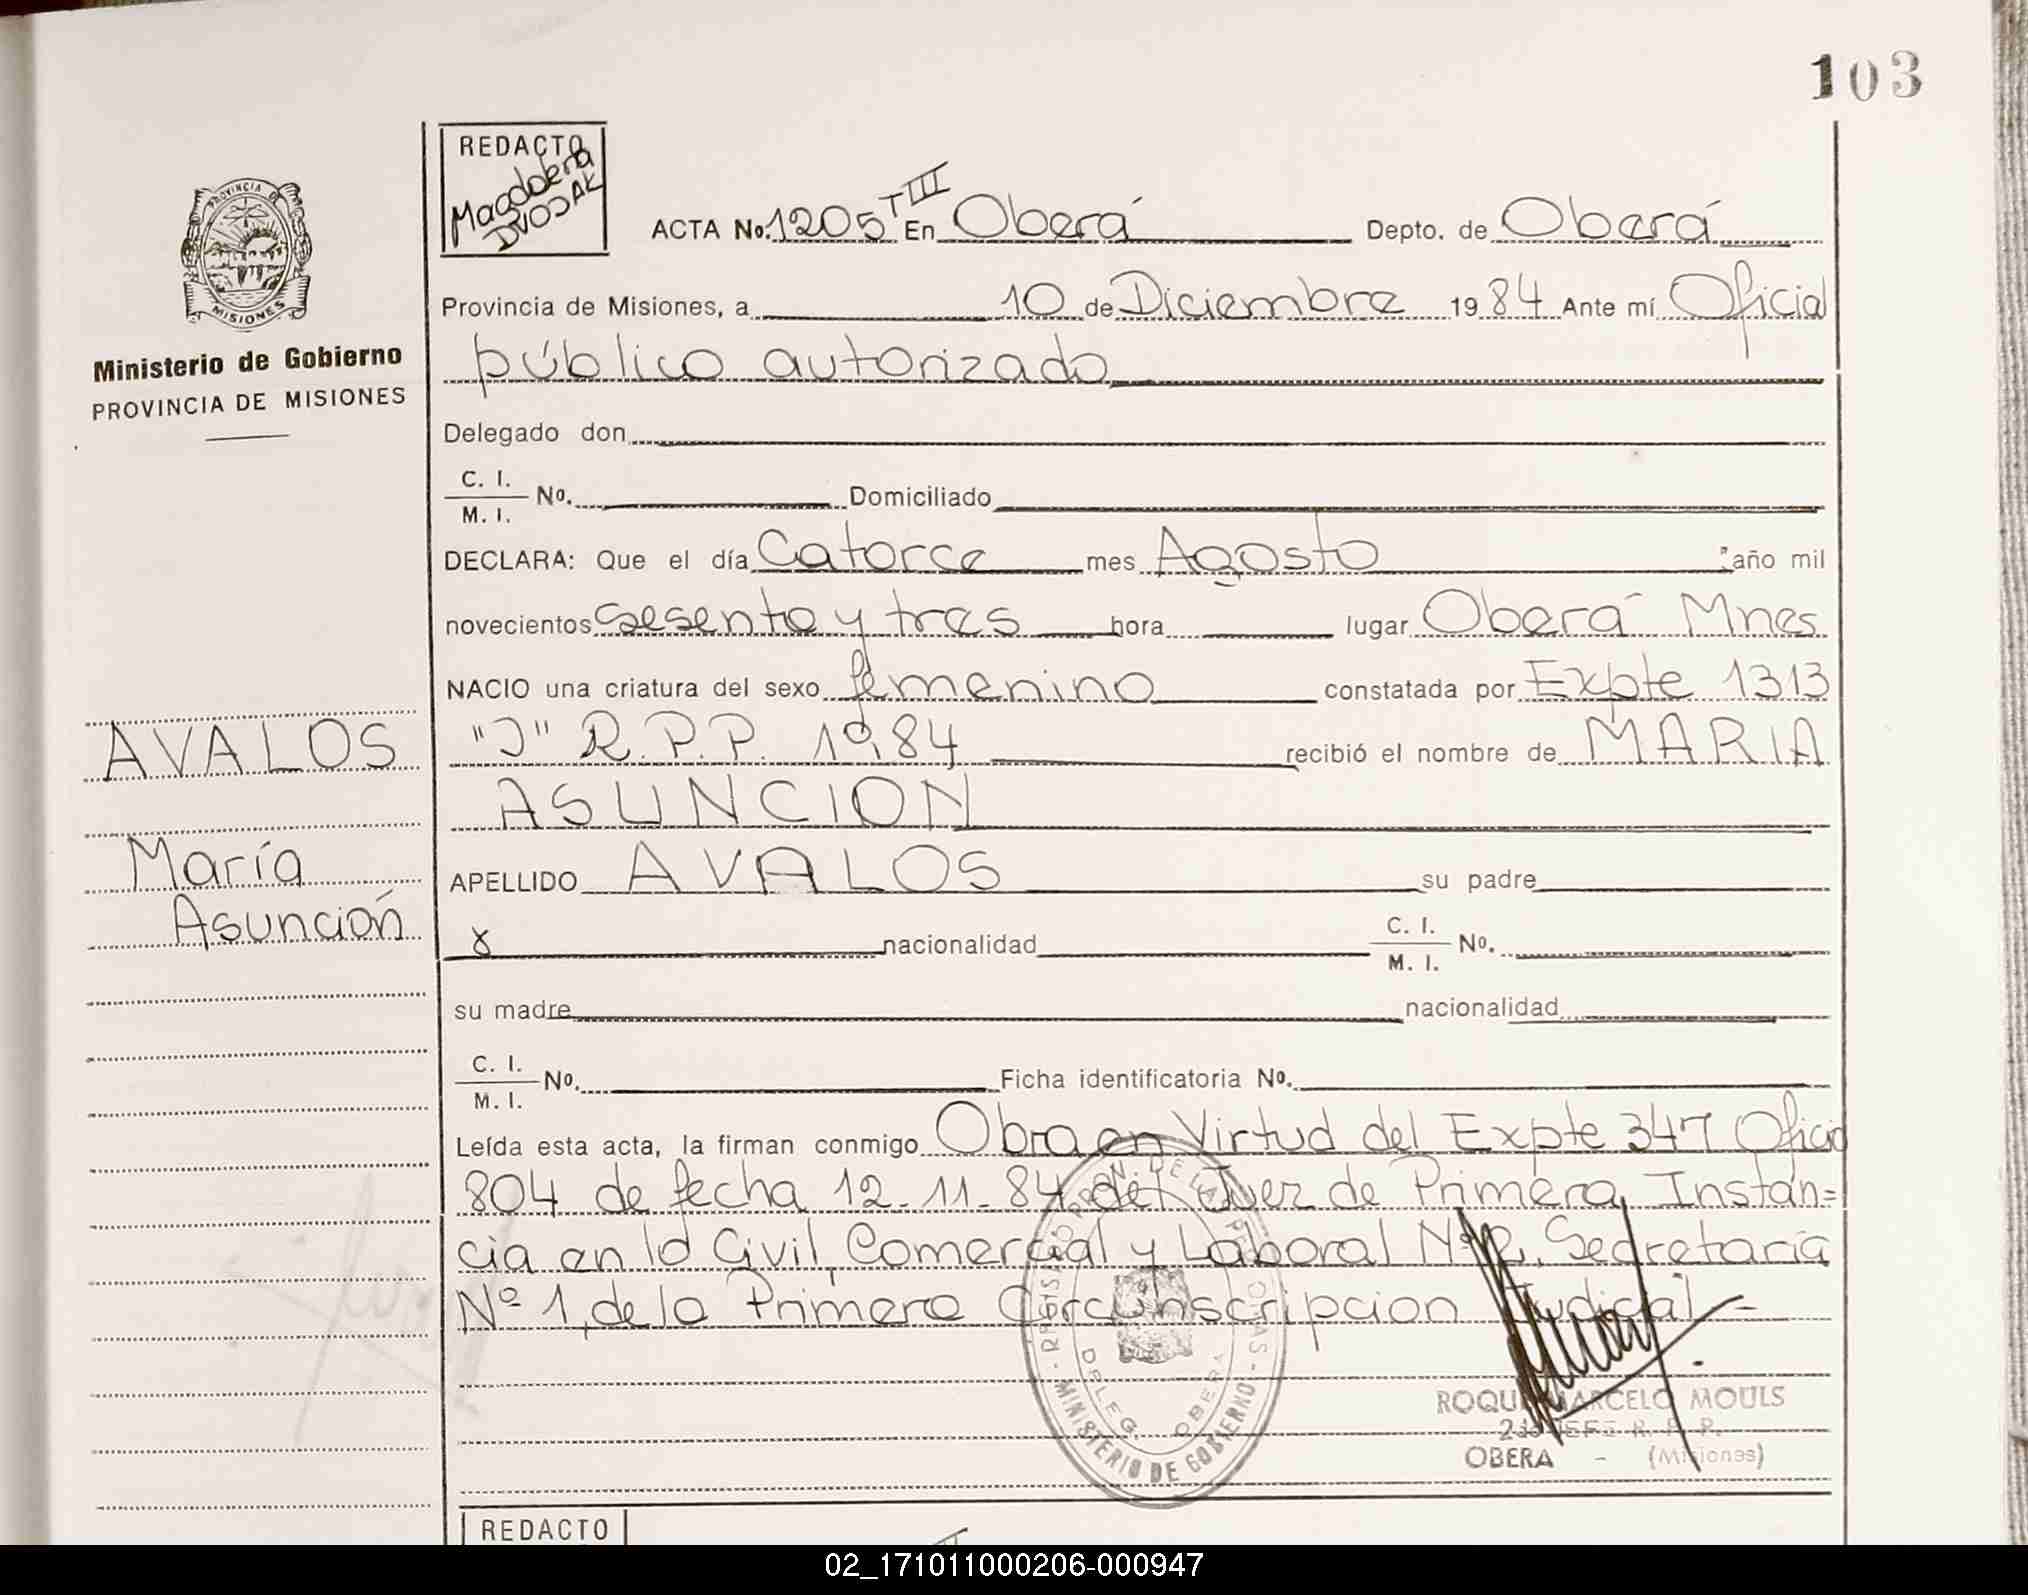 103
REDACTO
Magdalena
DVOJAK
ACTA No. 1205 T III En Oberá Depto. de Oberá
Provincia de Misiones, a 10 de Diciembre 1984 Ante mí Oficial
público autorizado
Delegado don
C. I.
M. I. No. Domiciliado
DECLARA: Que el día Catorce mes Agosto año mil
novecientos sesenta y tres hora lugar Oberá Mnes
NACIO una criatura del sexo femenino constatada por Expte 1313
"J" R.P.P. 1984 recibió el nombre de MARIA
ASUNCION
APELLIDO AVALOS su padre
nacionalidad C. I.
M. I. No.
su madre nacionalidad
C. I.
M. I. No. Ficha identificatoria No.
Leída esta acta, la firman conmigo Obra en Virtud del Expte 347 Oficio
804 de fecha 12-11-84 del Juez de Primera Instan=
cia en lo Civil, Comercial y Laboral Nº 2, Secretaría
Nº 1, de la Primera Circunscripcion Judicial
PROVINCIA DE
MISIONES
Ministerio de Gobierno
PROVINCIA DE MISIONES
AVALOS
María
Asunción
MINISTERIO DE GOBIERNO
DELEG. OBERA
ROQUE MARCELO MOULS
JEFE R. P. P.
OBERA - (Misiones)
REDACTO
02_171011000206-000947